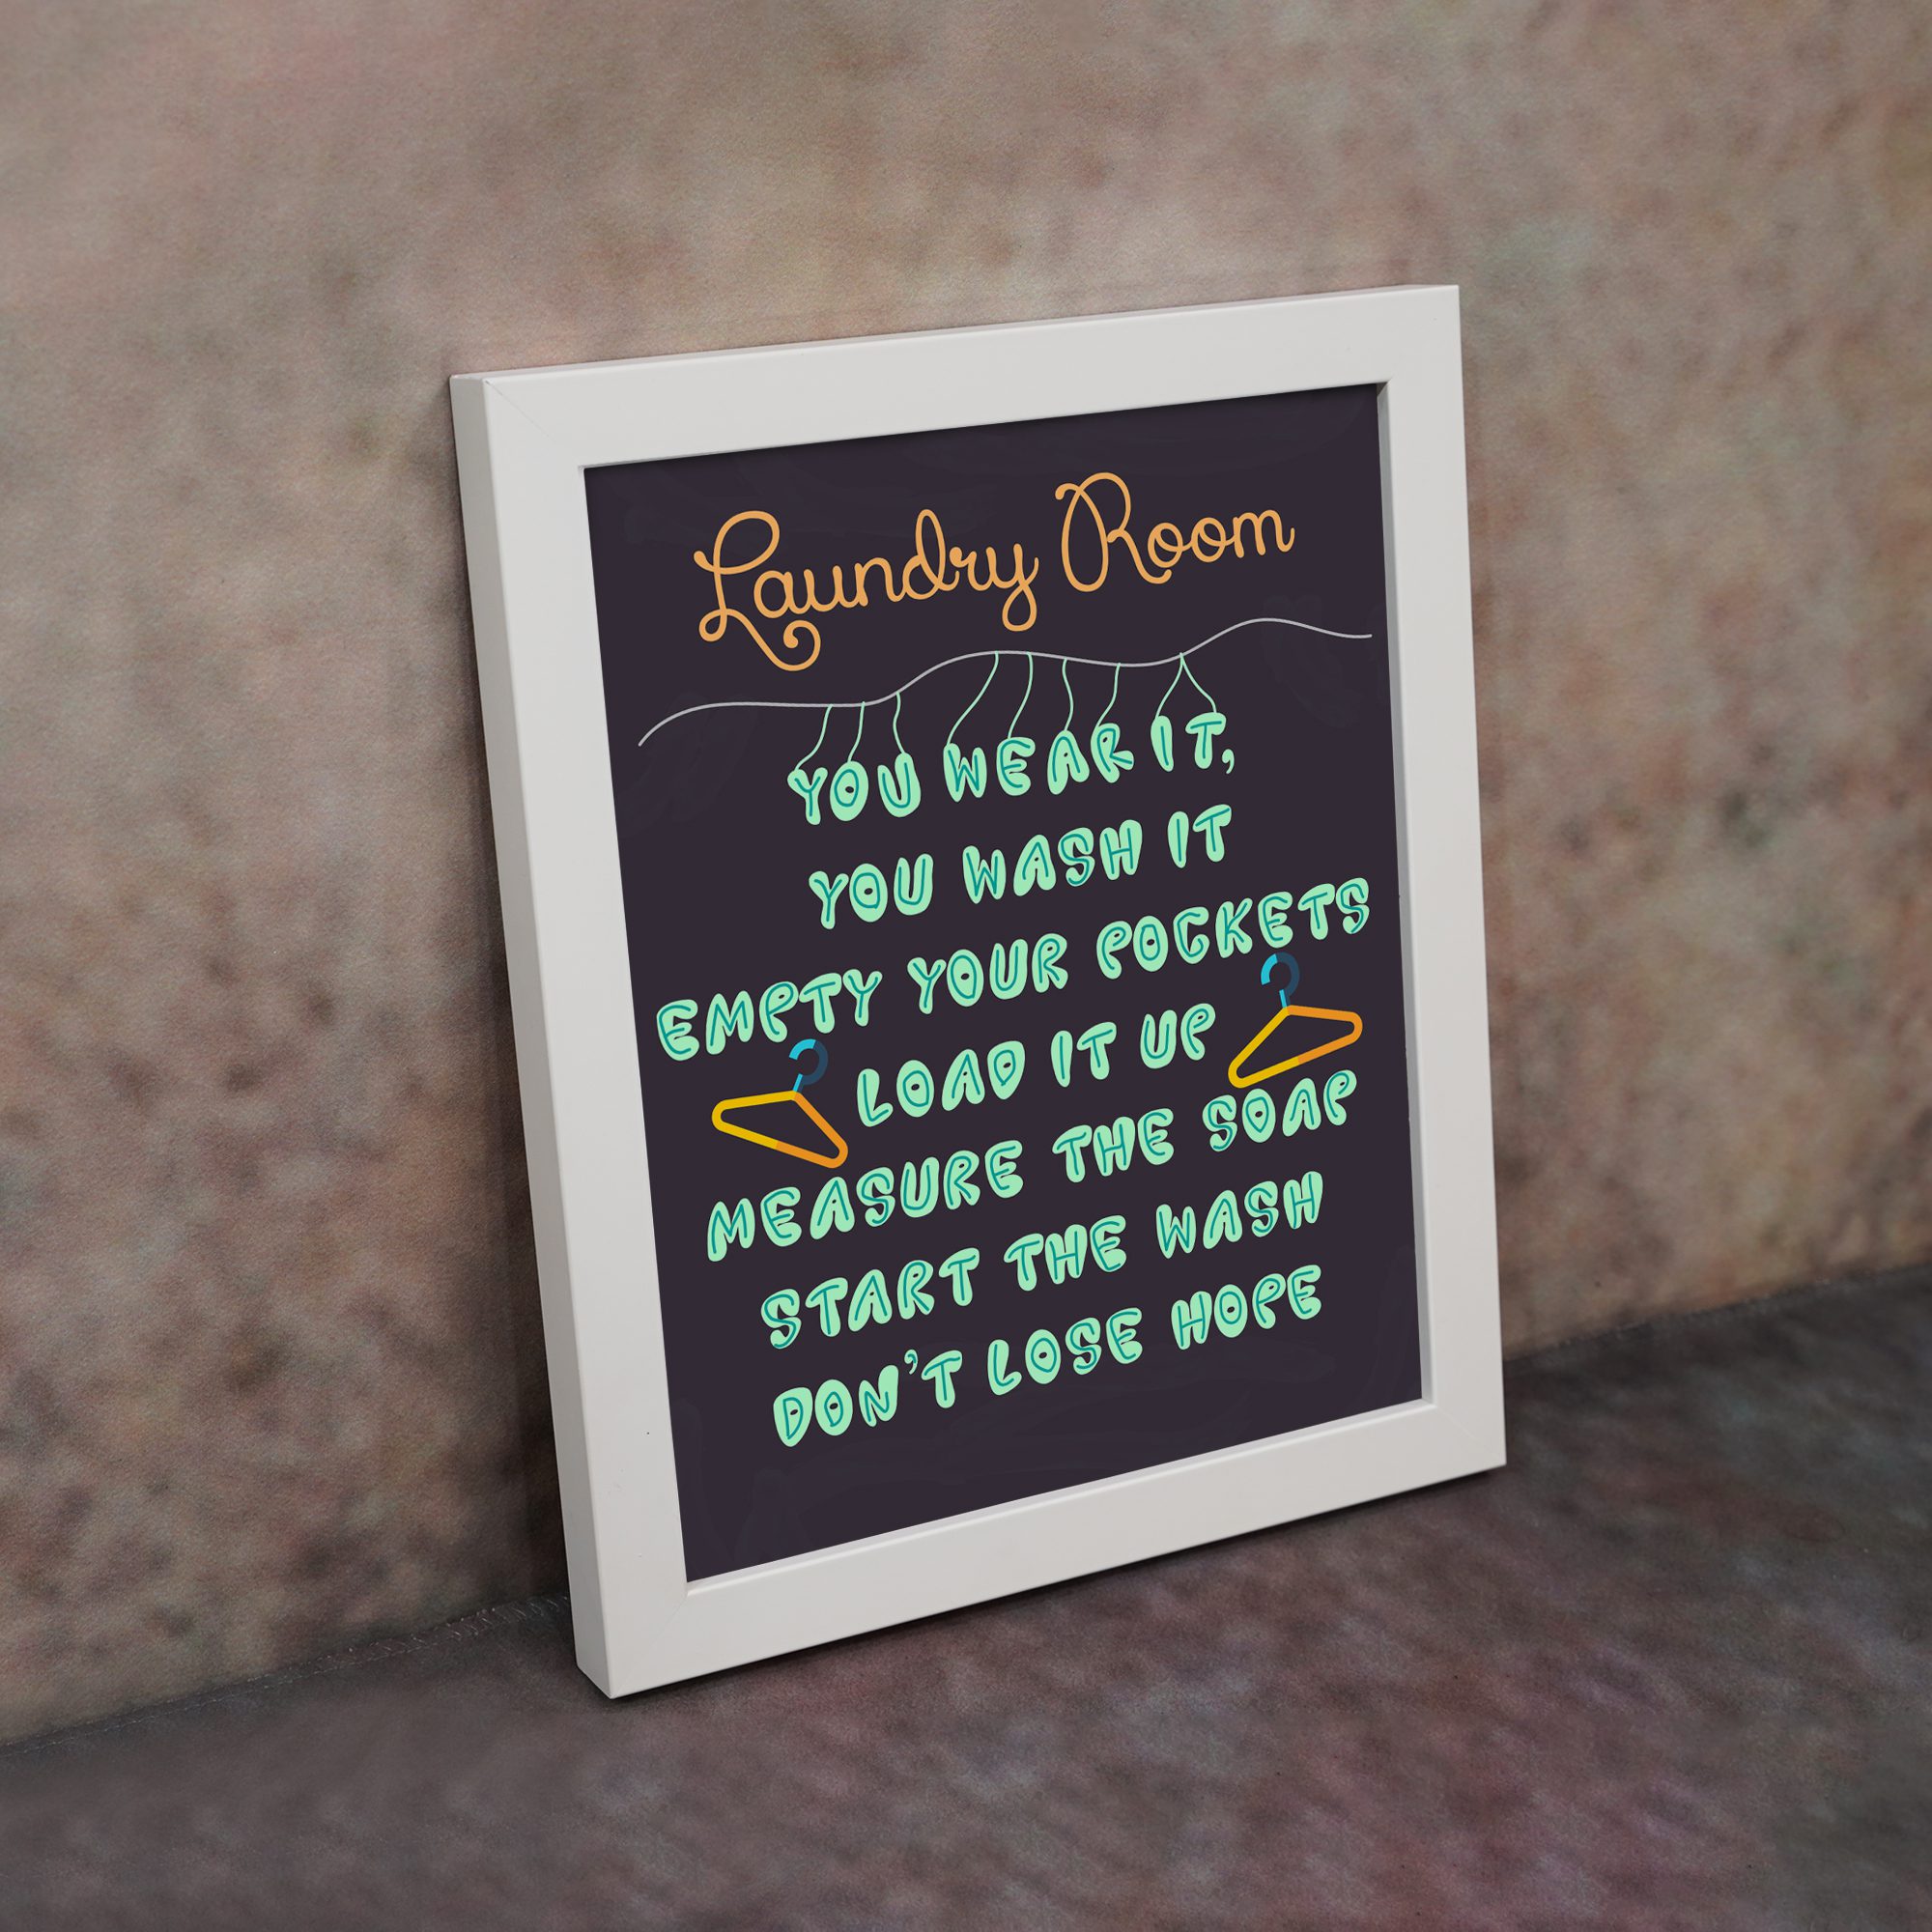 Laundry Room
YOU WEAR IT,
YOU WASH IT
EMPTY YOUR POCKETS
LOAD IT UP
MEASURE THE SOAP
START THE WASH
DON'T LOSE HOPE